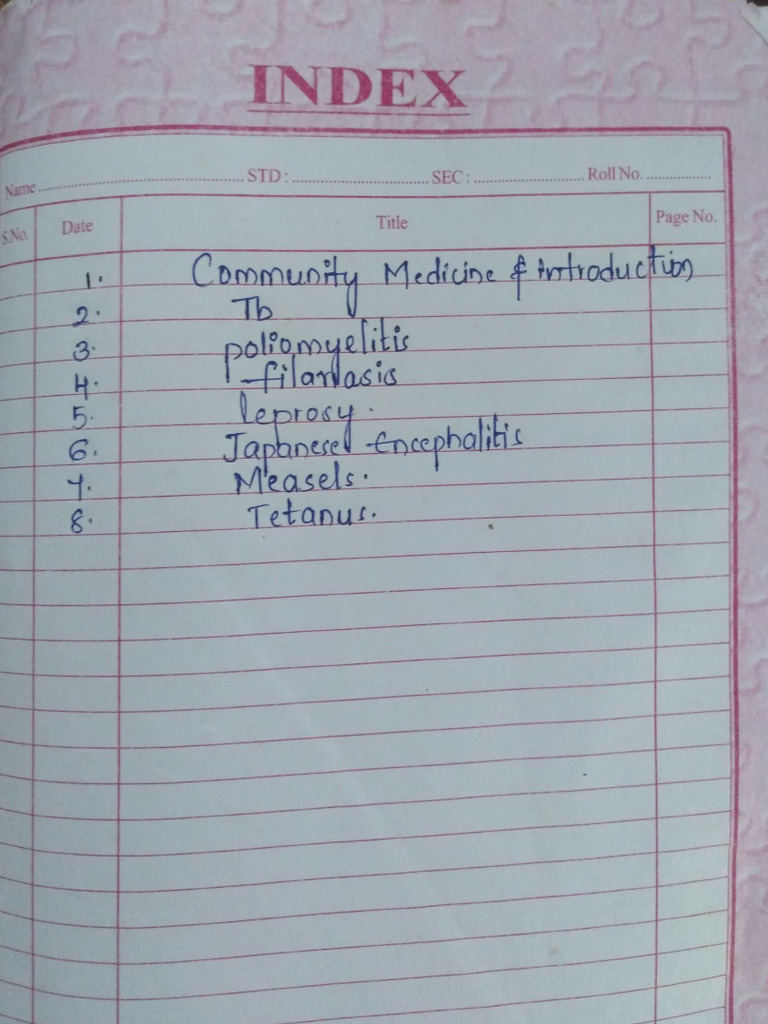 INDEX
Name ........ STD : ........ SEC : ........ Roll No. ........
S.No. Date Title Page No.
1. Community Medicine & introduction
2. Tb
3. poliomyelitis
4. filariasis
5. leprosy.
6. Japanese Encephalitis
7. Measels.
8. Tetanus.